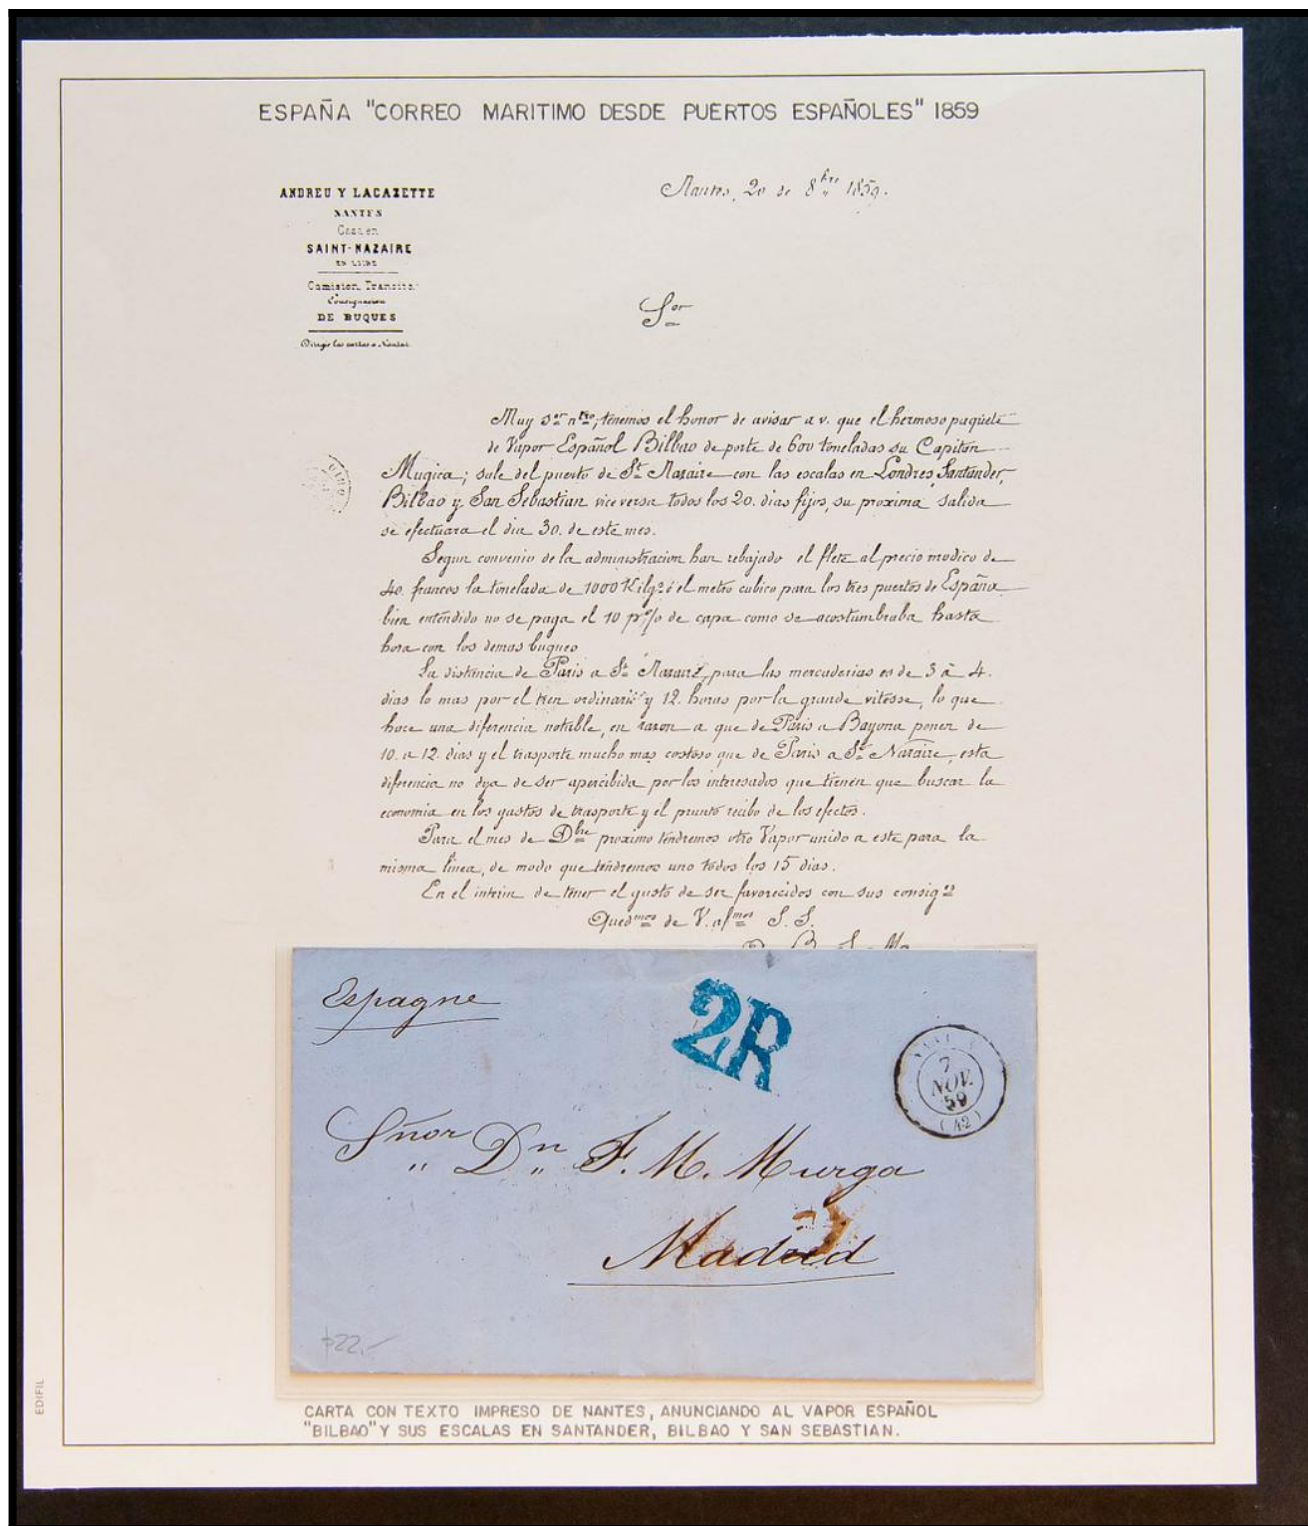 ESPAÑA "CORREO MARITIMO DESDE PUERTOS ESPAÑOLES" 1859
Nantes, 20 de 8bre 1859.
ANDREU Y LACAZETTE
NANTES
Casa en
SAINT-NAZAIRE
Comision, Transito
Consignacion
DE BUQUES
Dirigir las cartas a Nantes
Sor
Muy Sor ntro; tenemos el honor de avisar a v. que el hermoso paquete
de Vapor Español Bilbao de porte de 600 toneladas su Capitan
Mugica; sale del puerto de St. Nazaire con las escalas en Londres, Santander,
Bilbao y San Sebastian vice versa todos los 20. dias fijos, su proxima salida
se efectuara el dia 30. de este mes.
Segun convenio de la administracion han rebajado el flete al precio modico de
40. francos la tonelada de 1000 Kilgs. ó el metro cubico para los tres puertos de España
bien entendido no se paga el 10 p% de capa como se acostumbraba hasta
hora con los demas buques
La distancia de Paris a St. Nazaire, para las mercaderias es de 3 à 4.
dias lo mas por el tren ordinario y 12. horas por la grande vitesse, lo que
hace una diferencia notable, en razon a que de Paris a Bayona ponen de
10. a 12. dias y el trasporte mucho mas costoso que de Paris a St. Nazaire, esta
diferencia no deja de ser apercibida por los interesados que tienen que buscar la
economia en los gastos de trasporte y el prunto recibo de los efectos.
Para el mes de Dbre proximo tendremos otro Vapor unido a este para la
misma linea, de modo que tendremos uno todos los 15 dias.
En el interin de tener el gusto de ser favorecidos con sus consigs
Quedmos de V. afmos S. S.
Espagne
2R
7
NOV.
59
(42)
Sñor Dn F. M. Murga
Madrid
722.-
EDIFIL
CARTA CON TEXTO IMPRESO DE NANTES, ANUNCIANDO AL VAPOR ESPAÑOL
"BILBAO" Y SUS ESCALAS EN SANTANDER, BILBAO Y SAN SEBASTIAN.